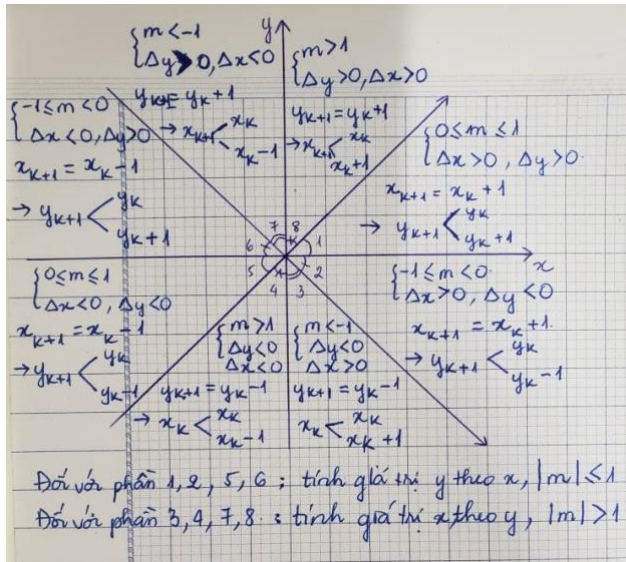 y
{ m < -1
Δy > 0, Δx < 0
y_k+1 = y_k + 1
→ x_k+1 < x_k
x_k - 1
{ m > 1
Δy > 0, Δx > 0
y_k+1 = y_k + 1
→ x_k+1 < x_k
x_k + 1
{ -1 ≤ m < 0
Δx < 0, Δy > 0
x_k+1 = x_k - 1
→ y_k+1 < y_k
y_k + 1
{ 0 ≤ m ≤ 1
Δx > 0, Δy > 0
x_k+1 = x_k + 1
→ y_k+1 < y_k
y_k + 1
7 8
6 1
5 2
4 3
x
{ 0 ≤ m ≤ 1
Δx < 0, Δy < 0
x_k+1 = x_k - 1
→ y_k+1 < y_k
y_k - 1
{ m > 1
Δy < 0
Δx < 0
y_k+1 = y_k - 1
→ x_k < x_k
x_k - 1
{ m < -1
Δy < 0
Δx > 0
y_k+1 = y_k - 1
x_k < x_k
x_k + 1
{ -1 ≤ m < 0
Δx > 0, Δy < 0
x_k+1 = x_k + 1.
→ y_k+1 < y_k
y_k - 1
Đối với phần 1, 2, 5, 6 : tính giá trị y theo x, |m| ≤ 1
Đối với phần 3, 4, 7, 8 : tính giá trị x theo y, |m| > 1